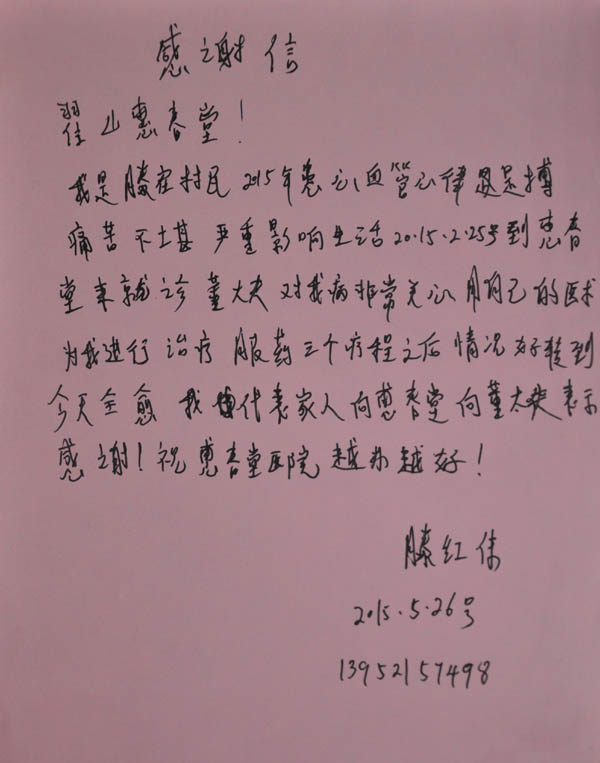 感之谢信
翟山惠春堂！
我是滕寨村民 2015年患心血管心律 是搏
痛苦不土甚 严重影响生活 2015.2.25号到惠春
堂来就之诊 董大夫 对我病非常关心 用自己的医术
为我进行治疗 服药三个疗程之后 情况好转到
今天全愈 我 代表家人向惠春堂向董大夫表示
感之谢！祝惠春堂医院越办越好！
滕红伟
2015.5.26号
13952157498